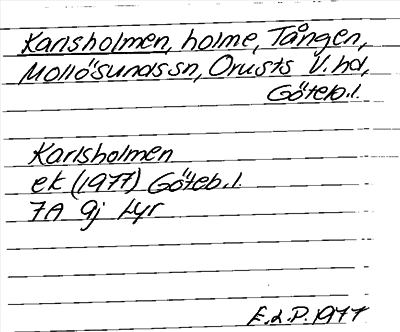 Karlsholmen, holme, Tången,
Mollösunds sn, Orusts V. hd,
Göteb.l.
Karlsholmen
ek (1977) Göteb.l.
7A 9j Lyr
E.L.P. 1977